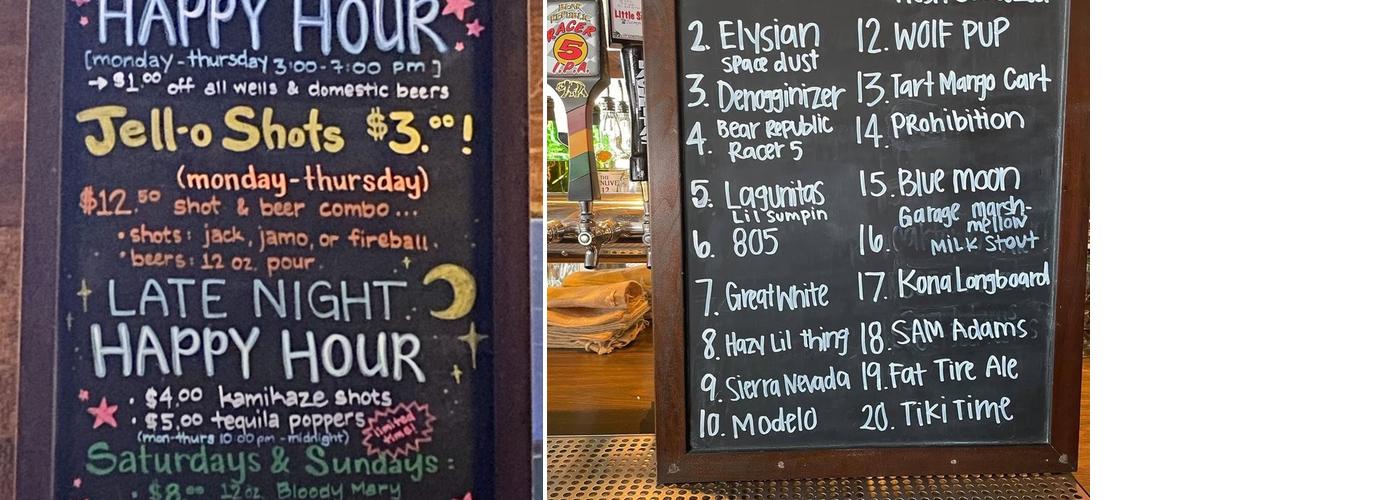 HAPPY HOUR
[monday-thursday 3:00-7:00 pm]
→ $1.00 off all wells & domestic beers
Jell-o Shots $3.00!
(monday-thursday)
$12.50 shot & beer combo...
• shots: jack, jamo, or fireball.
• beers: 12 oz. pour.
LATE NIGHT
HAPPY HOUR
• $4.00 kamikaze shots
• $5.00 tequila poppers
limited
time!
(mon-thurs 10:00pm-midnight)
Saturdays & Sundays:
• $8.00 12oz. Bloody Mary
BEAR
REPUBLIC
RACER
5
I.P.A.
Little S
2. Elysian
space dust
3. Denogginizer
4. Bear Republic
Racer 5
5. Lagunitas
Lil sumpin
6. 805
7. Great White
8. Hazy Lil thing
9. Sierra Nevada
10. Modelo
12. WOLF PUP
13. Tart Mango Cart
14. PRohibition
15. Blue moon
16. Garage marsh-
mellow
MILK Stout
17. Kona Longboard
18. SAM Adams
19. Fat Tire Ale
20. Tiki Time